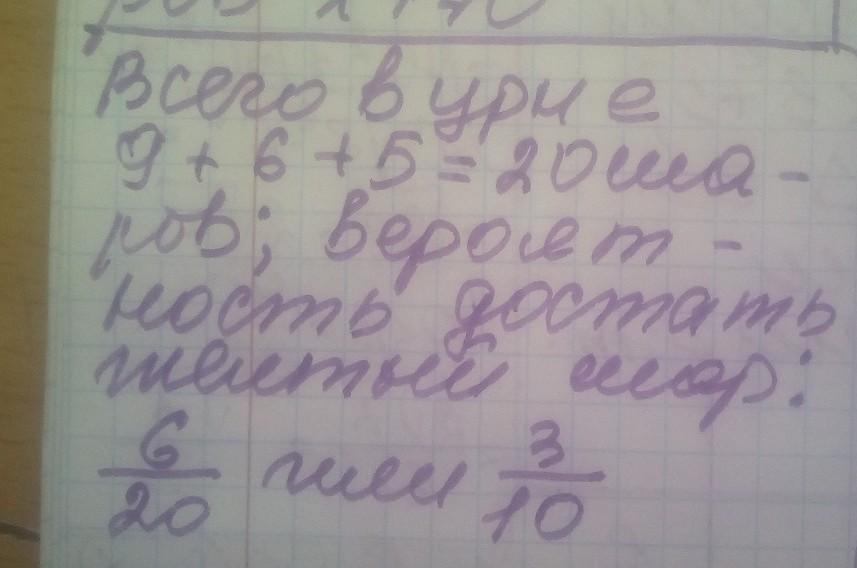 Всего в урне
9 + 6 + 5 = 20 ша-
ров; вероят-
ность достать
желтый шар:
6/20 или 3/10